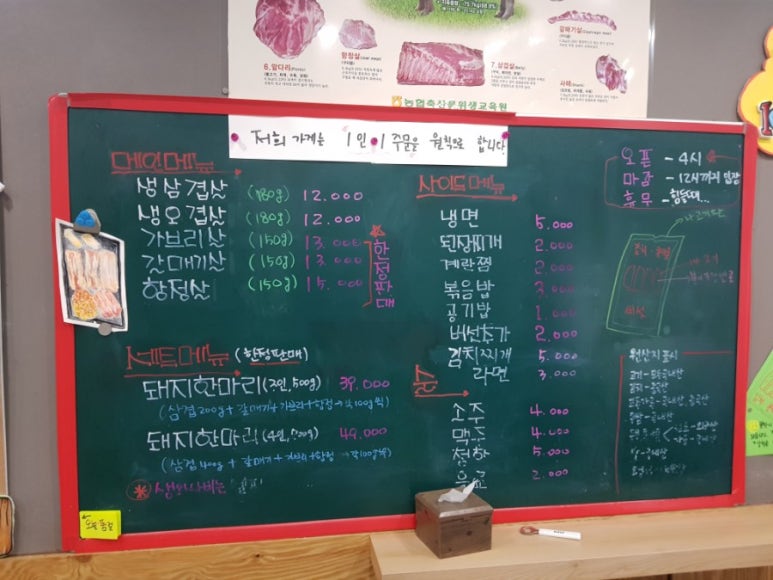 6.앞다리
항정살
7.삼겹살
갈매기살
사태
농협축산물위생교육원
저희 가게는 1인 1 주문을 원칙으로 합니다
메인메뉴
생삼겹살 (180g) 12.000
생오겹살 (180g) 12.000
가브리살 (150g) 13.000
갈매기살 (150g) 13.000
항정살 (150g) 15.000
한정판매
세트메뉴 (한정판매)
돼지한마리 (2인, 500g) 39.000
(삼겹200g + 갈매기 + 가브리 + 항정 → 각100g씩)
돼지한마리 (4인, 00g) 49.000
(삼겹400g + 갈매기 + 가브리 + 항정 → 각100g씩)
사이드메뉴
냉면 5.000
된장찌개 2.000
계란찜 2.000
볶음밥 3.000
공기밥 1.000
버섯추가 2.000
김치찌개 5.000
라면 3.000
술
소주 4.000
맥주 4.000
청하 5.000
음료 2.000
오픈 - 4시
마감 - 12시까지 입장
휴무 - 힘들때...
버섯
원산지표시